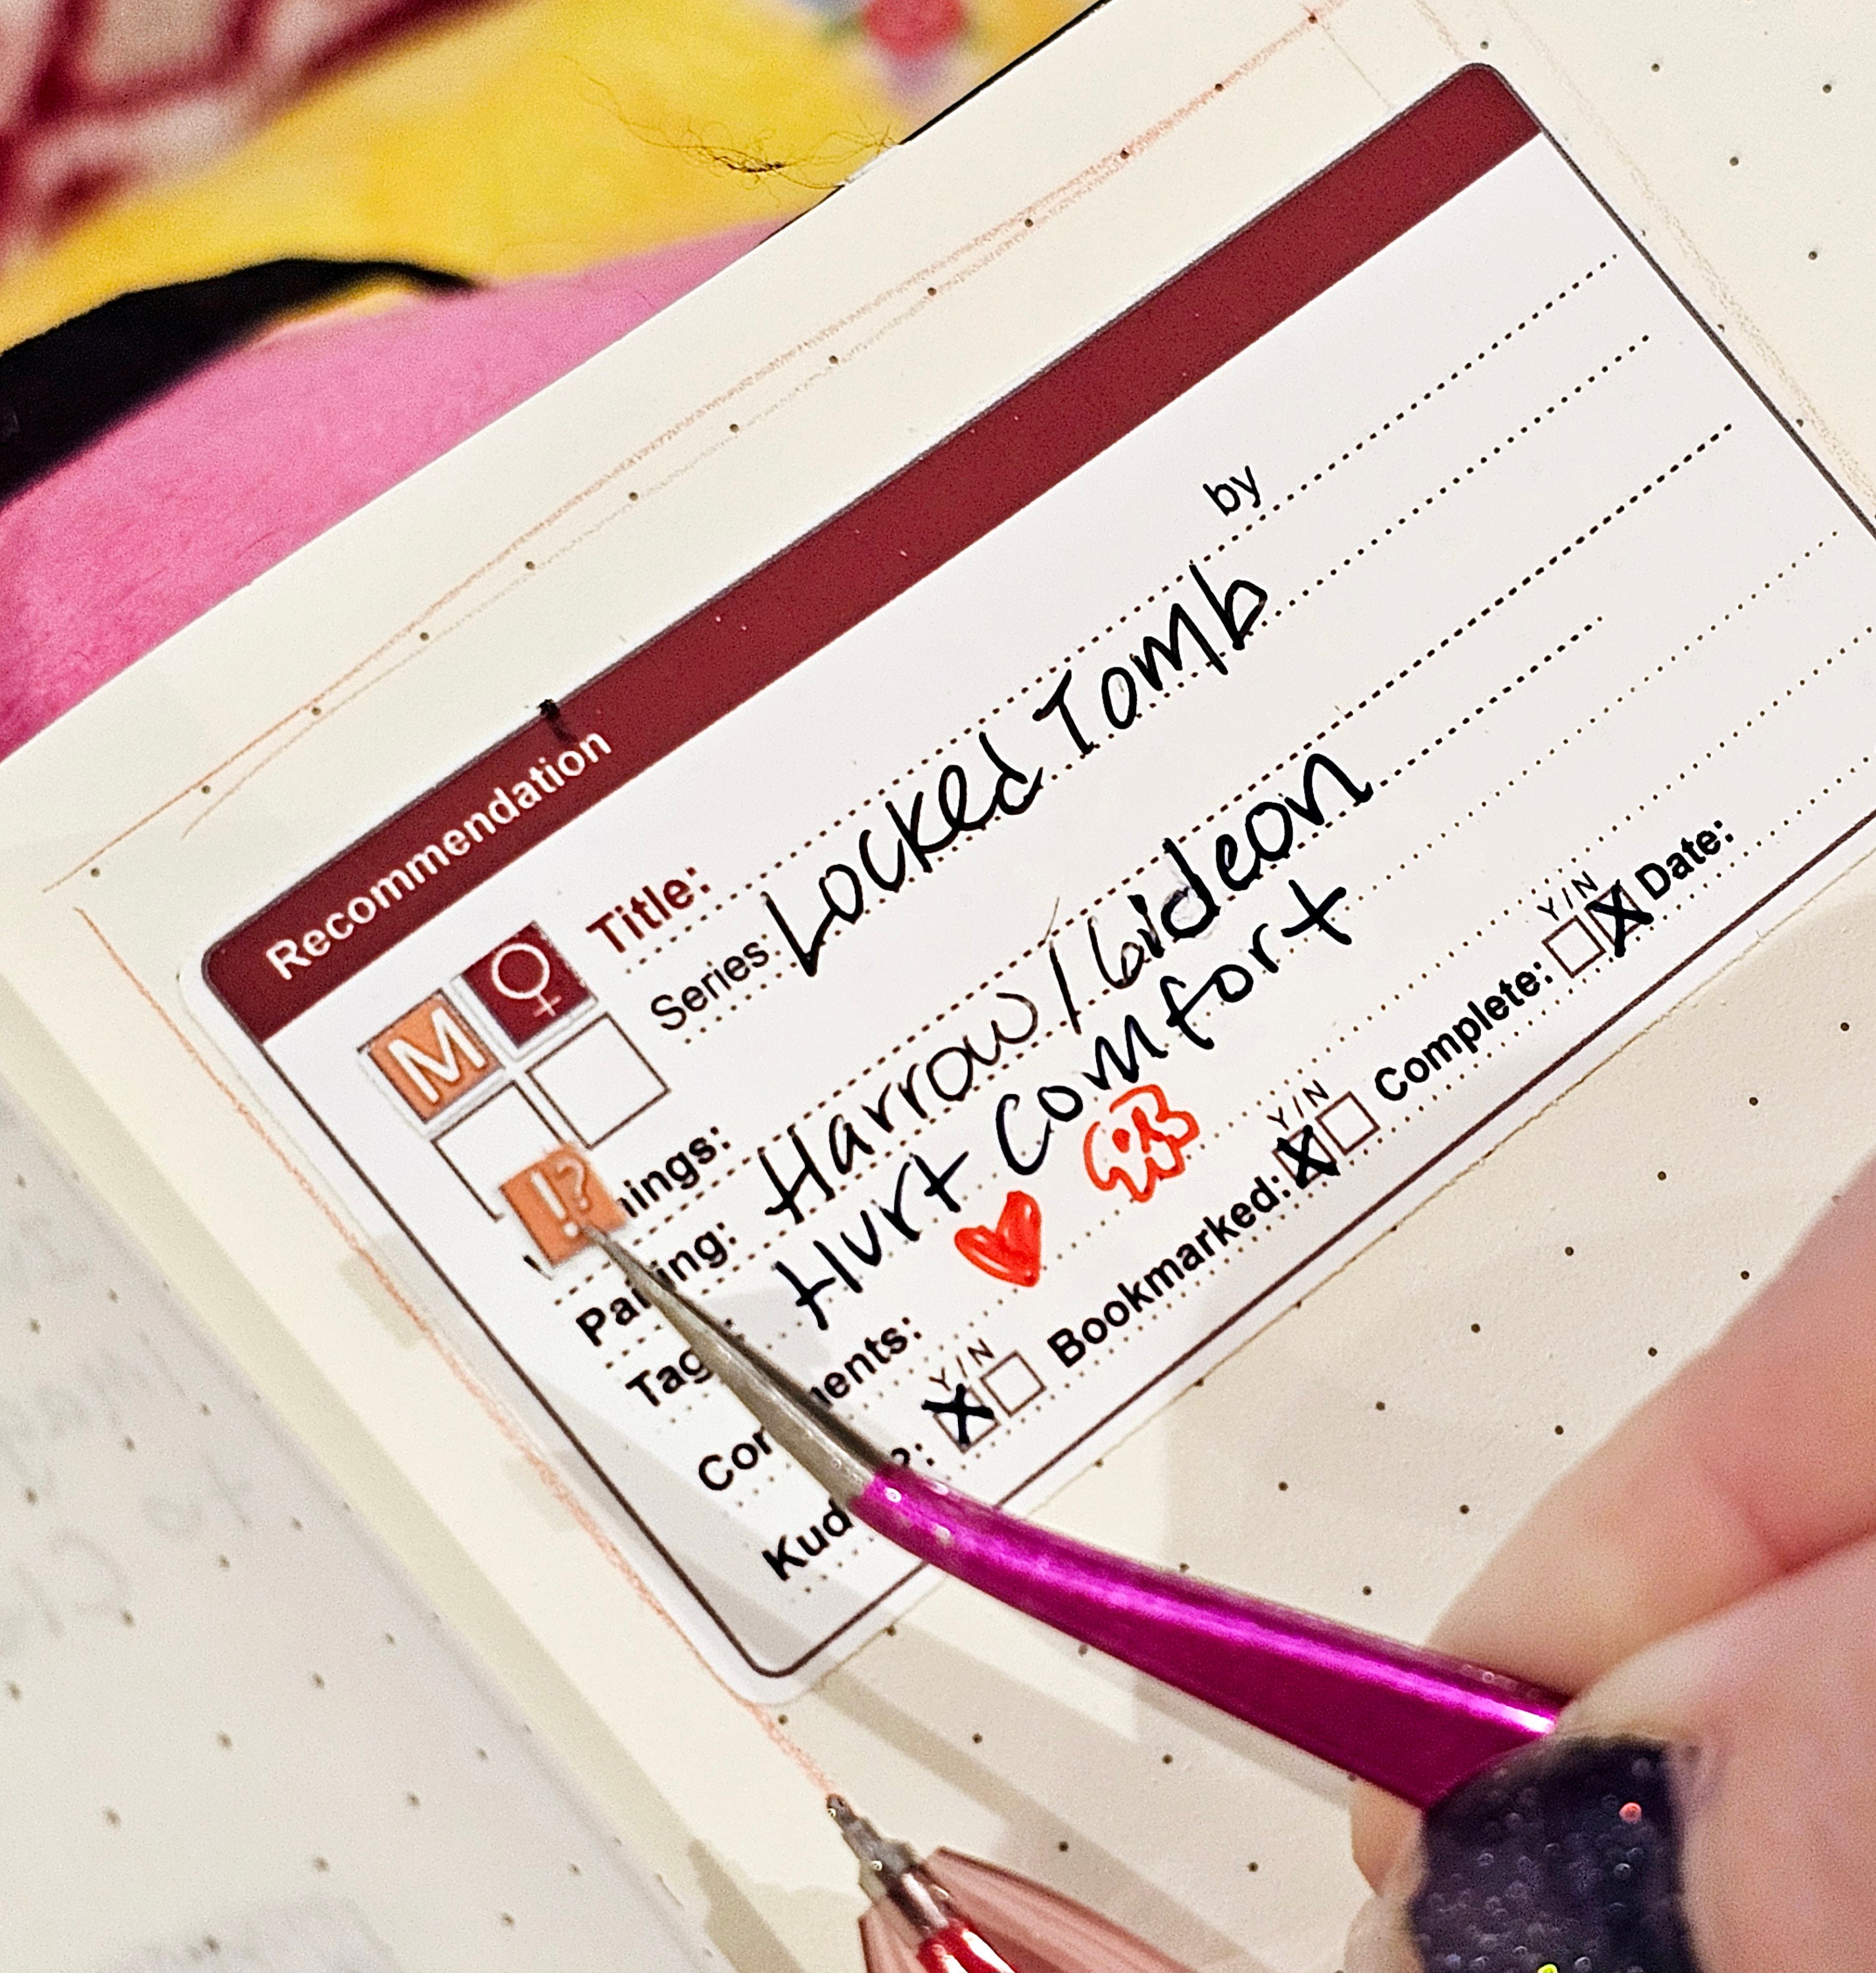 Recommendation
M ♀ Title: by
Series: Locked Tomb
!? nings:
Pairing: Harrow/Gideon
Tag : Hurt Comfort
Com ents: ♥
Kud ?: Y/N X Bookmarked: Y/N X Complete: Y/N X Date: